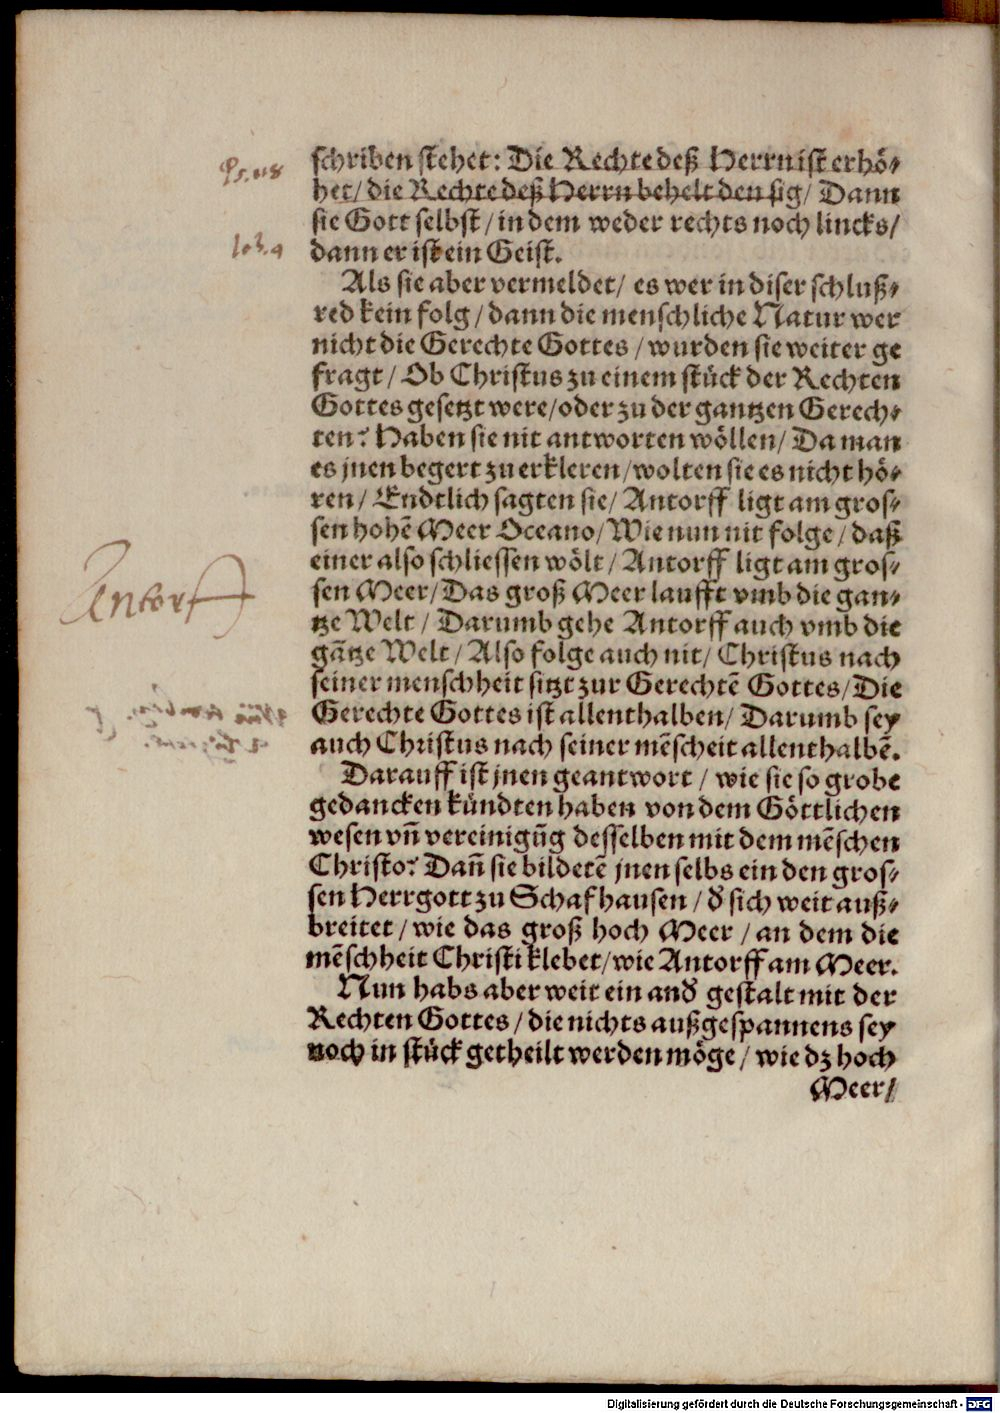 Ps. 118
schriben stehet: Die Rechte deß Herrn ist erhö-
het/ die Rechte deß Herrn behelt den sig/ Dann
sie Gott selbst/ in dem weder rechts noch lincks/
Joh. 4
dann er ist ein Geist.
Als sie aber vermeldet/ es wer in diser schluß-
red kein folg/ dann die menschliche Natur wer
nicht die Gerechte Gottes/ wurden sie weiter ge
fragt/ Ob Christus zu einem stück der Rechten
Gottes gesetzt were/ oder zu der gantzen Gerech-
ten? Haben sie nit antworten wöllen/ Da man
es jnen begert zu erkleren/ wolten sie es nicht hö-
ren/ Endtlich sagten sie/ Antorff ligt am gros-
sen hohẽ Meer Oceano/ Wie nun nit folge/ daß
einer also schliessen wölt/ Antorff ligt am gros-
Antorf
sen Meer/ Das groß Meer laufft vmb die gan-
tze Welt/ Darumb gehe Antorff auch vmb die
gãtze Welt/ Also folge auch nit/ Christus nach
seiner menschheit sitzt zur Gerechtẽ Gottes/ Die
Gerechte Gottes ist allenthalben/ Darumb sey
auch Christus nach seiner mẽscheit allenthalbẽ.
Darauff ist jnen geantwort/ wie sie so grobe
gedancken kündten haben von dem Göttlichen
wesen vñ vereinigũg desselben mit dem mẽschen
Christo? Dañ sie bildetẽ jnen selbs ein den gros-
sen Herrgott zu Schafhausen/ d sich weit auß-
breitet/ wie das groß hoch Meer/ an dem die
mẽschheit Christi klebet/ wie Antorff am Meer.
Nun habs aber weit ein and gestalt mit der
Rechten Gottes/ die nichts außgespannens sey
noch in stück getheilt werden möge/ wie dz hoch
Meer/
Digitalisierung gefördert durch die Deutsche Forschungsgemeinschaft - DFG